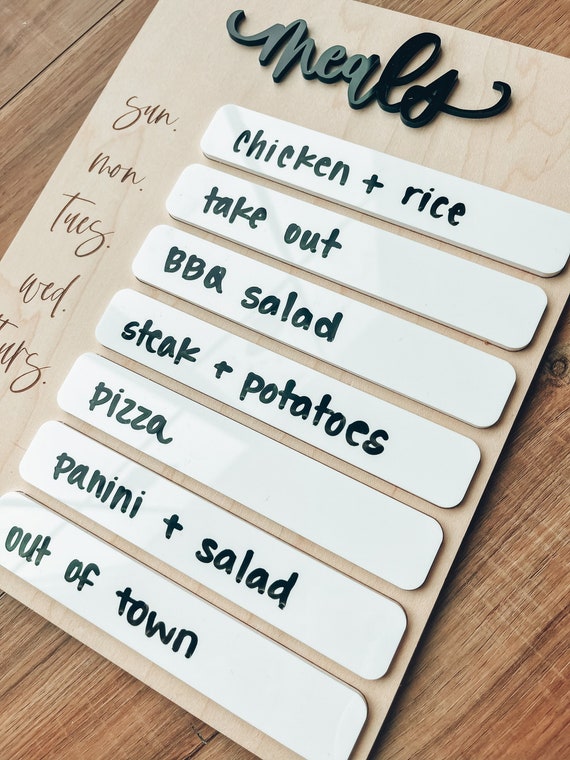 meals
sun. chicken + rice
mon. take out
Tues. BBQ salad
wed. steak + potatoes
pizza
panini + salad
out of town